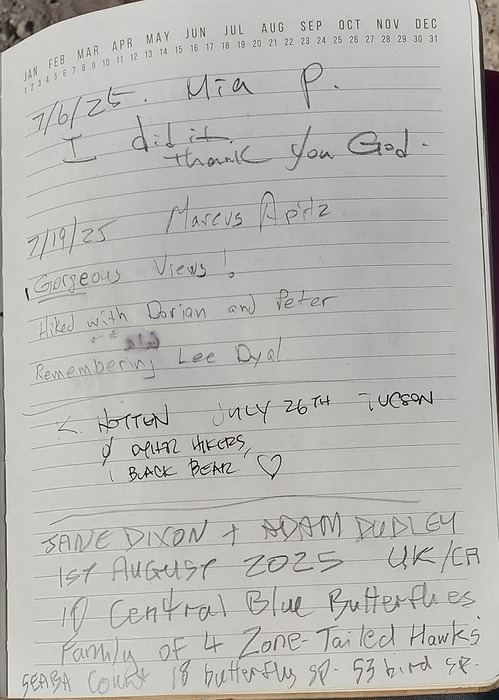 JAN FEB MAR APR MAY JUN JUL AUG SEP OCT NOV DEC
1 2 3 4 5 6 7 8 9 10 11 12 13 14 15 16 17 18 19 20 21 22 23 24 25 26 27 28 29 30 31
7/6/25. Mia P.
I did it.
Thank you God.
7/19/25 Marcus Apitz
Gorgeous Views!
Hiked with Dorian and Peter
Remembering Lee Dyal
HOTTEN JULY 26TH TUCSON
OTHER HIKERS,
1 BLACK BEAR ♡
JANE DIXON + ADAM DUDLEY
1ST AUGUST 2025 UK/CA
10 Central Blue Butterflies
Family of 4 Zone-Tailed Hawks
SEABA Count 18 butterfly sp. 53 bird sp.